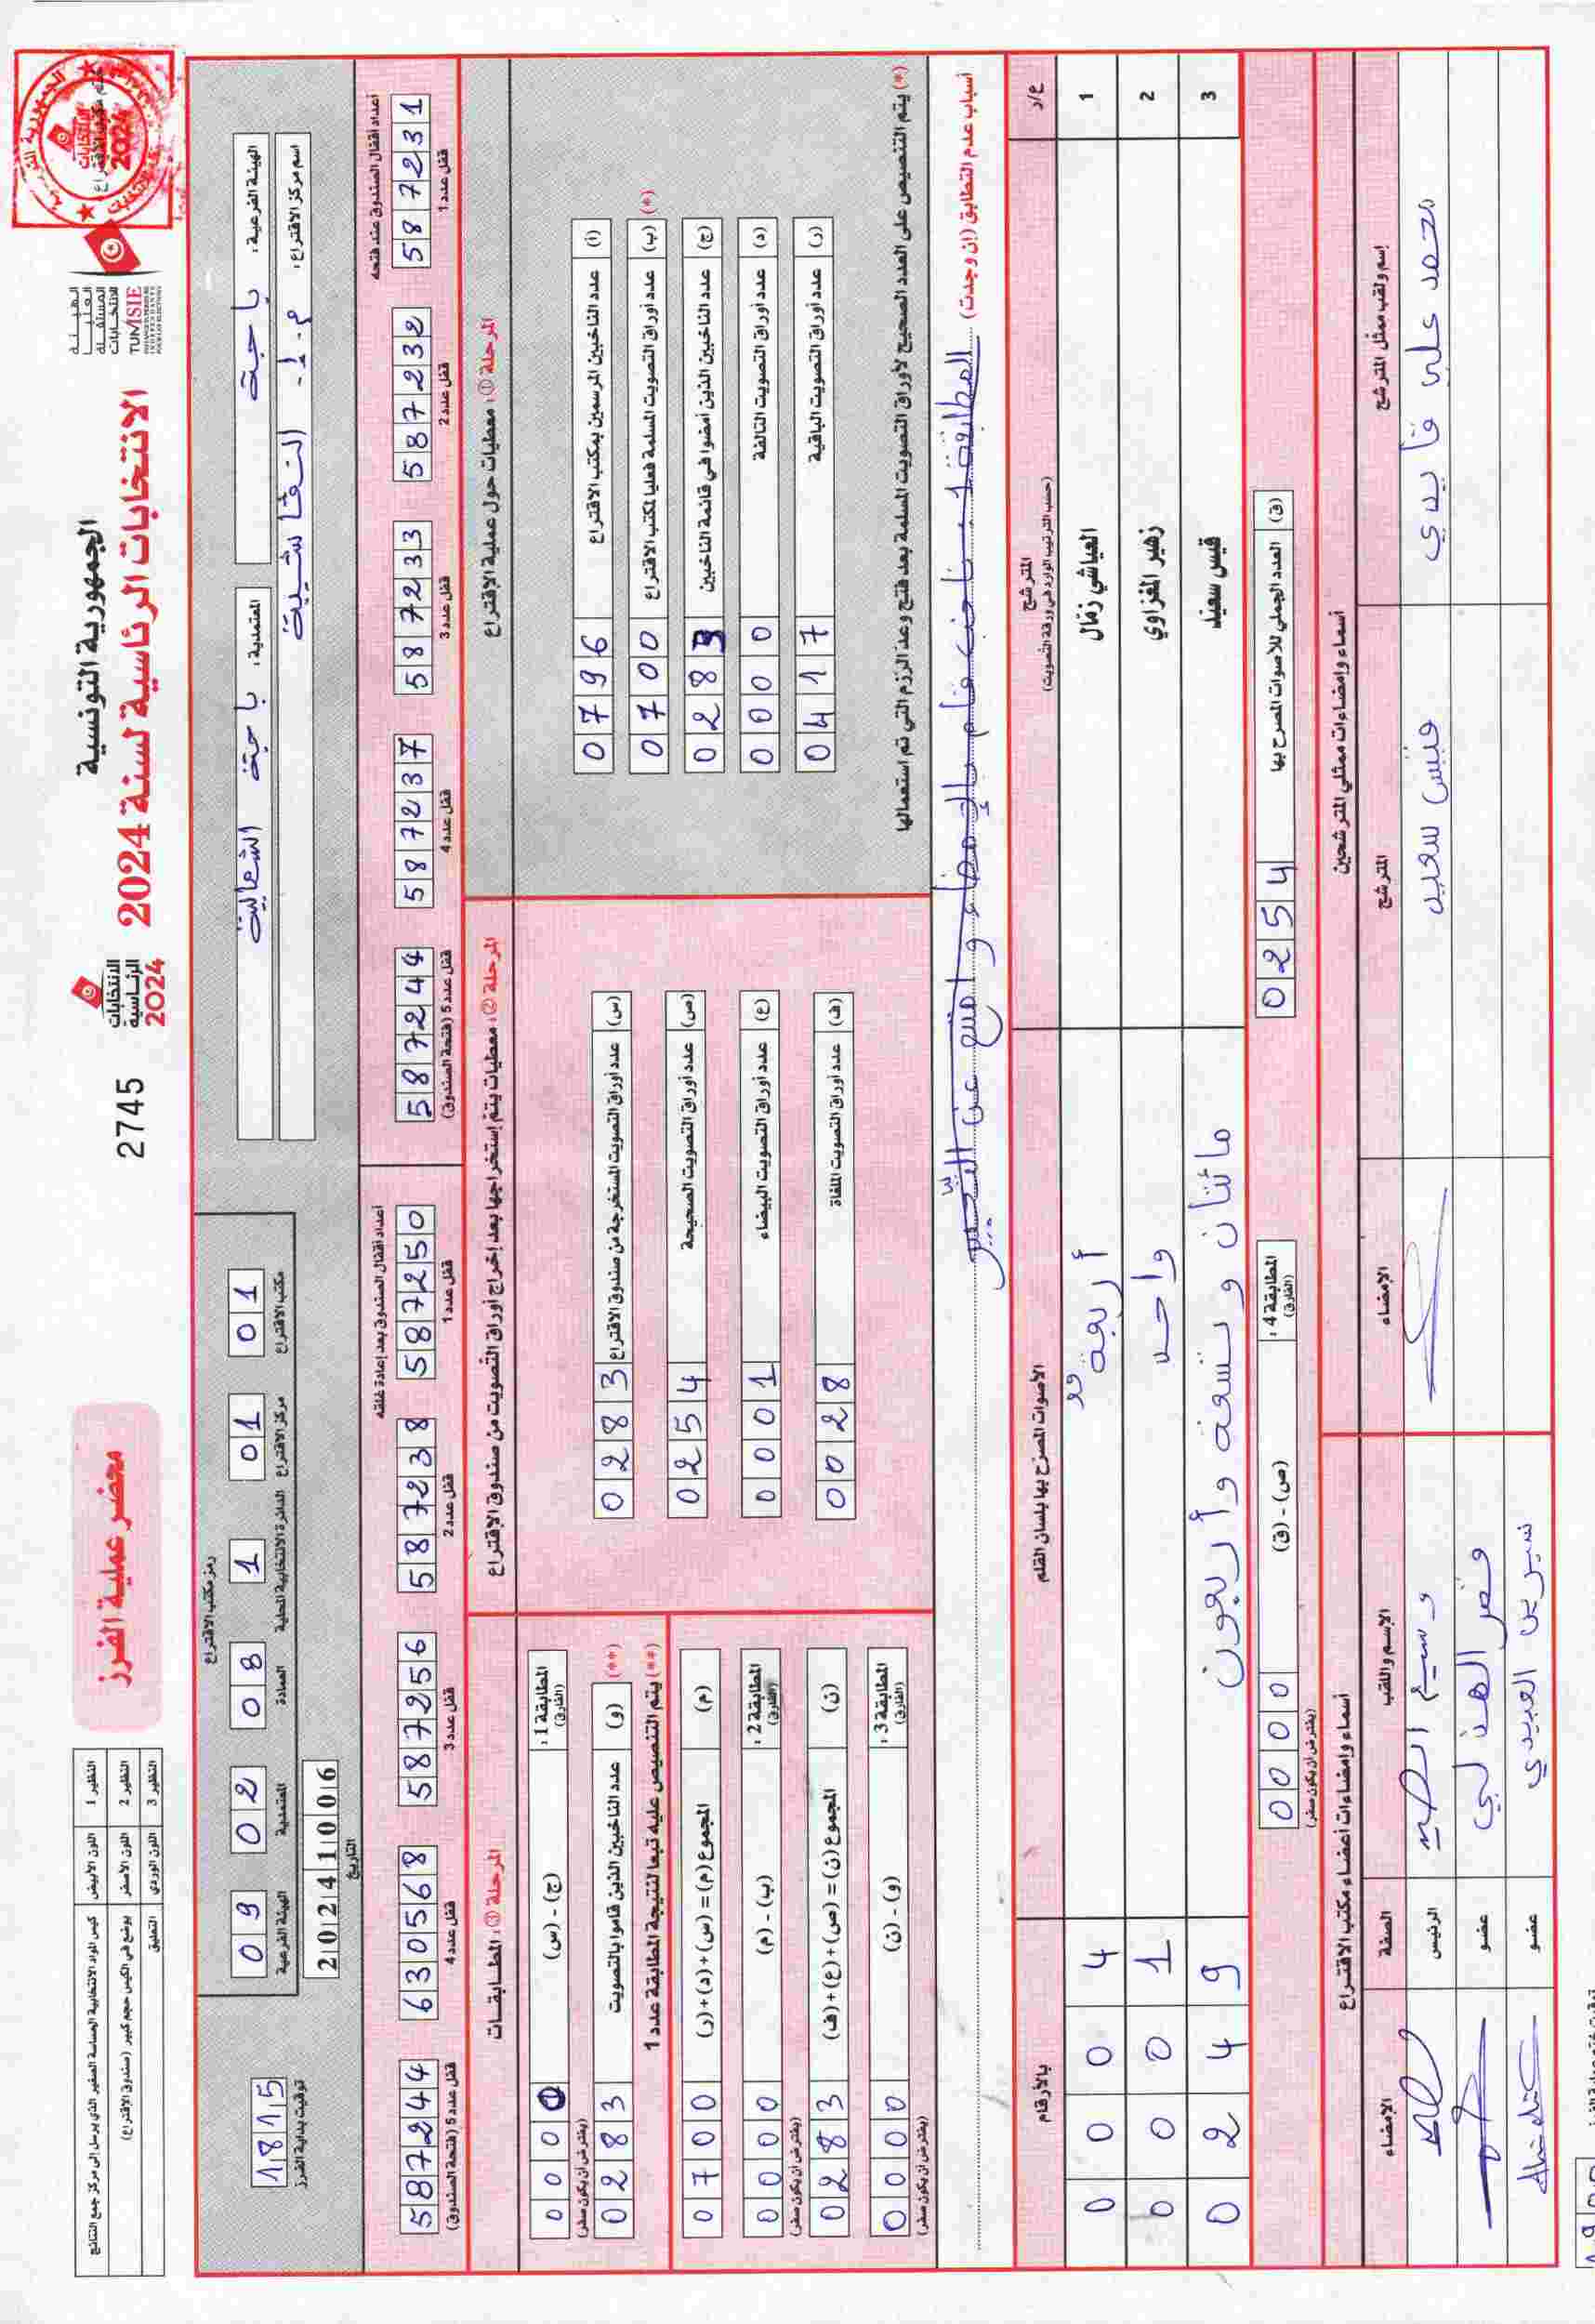 الجمهورية التونسية
الانتخابات الرئاسية لسنة 2024
الهيئة العليا المستقلة للانتخابات
TUNISIE
الانتخابات الرئاسية 2024
2745
محضر عملية الفرز
النظير 1 اللون الأبيض كيس المواد الانتخابية الحساسة الصغير الذي يرسل إلى مركز جمع النتائج
النظير 2 اللون الأصفر يوضع في الكيس حجم كبير (صندوق الاقتراع)
النظير 3 اللون الوردي التعليق
الهيئة الفرعية: باجة
المعتمدية: باجة الشمالية
اسم مركز الاقتراع: م.إ.
رمز مكتب الاقتراع
09 02 08 1 01 01
الهيئة الفرعية المعتمدية العمادة الدائرة الانتخابية المحلية مركز الاقتراع مكتب الاقتراع
20241006
التاريخ
1815
توقيت بداية الفرز
أعداد أقفال الصندوق عند فتحه
5887231 5887232 5887233 5887237 5887244
قفل عدد 1 قفل عدد 2 قفل عدد 3 قفل عدد 4 قفل عدد 5 (فتحة الصندوق)
أعداد أقفال الصندوق بعد إعادة غلقه
5887250 5887238 5887256 630568 5887244
قفل عدد 1 قفل عدد 2 قفل عدد 3 قفل عدد 4 قفل عدد 5 (فتحة الصندوق)
المرحلة ①: معطيات حول عملية الاقتراع
(أ) عدد الناخبين المرسمين بمكتب الاقتراع 0796
(ب) عدد أوراق التصويت المسلمة فعليا لمكتب الاقتراع 0700 (*)
(ج) عدد الناخبين الذين أمضوا في قائمة الناخبين 0283
(د) عدد أوراق التصويت التالفة 0000
(ر) عدد أوراق التصويت الباقية 0417
(*) يتم التنصيص على العدد الصحيح لأوراق التصويت المسلمة بعد فتح وعد الرزم التي تم استعمالها
المرحلة ②: معطيات يتم إستخراجها بعد إخراج أوراق التصويت من صندوق الاقتراع
(س) عدد أوراق التصويت المستخرجة من صندوق الاقتراع 0283
(ص) عدد أوراق التصويت الصحيحة 0254
(ع) عدد أوراق التصويت البيضاء 0001
(ف) عدد أوراق التصويت الملغاة 0028
المرحلة ③: المطابقات
المطابقة 1: (الفارق) (ج) - (س) 0000
(يفترض أن يكون صفر)
(و) عدد الناخبين الذين قاموا بالتصويت 0283 (**)
(**) يتم التنصيص عليه تبعا لنتيجة المطابقة عدد 1
(م) المجموع (م) = (س)+(د)+(ر) 0700
المطابقة 2: (الفارق) (ب) - (م) 0000
(يفترض أن يكون صفر)
(ن) المجموع (ن) = (ص)+(ع)+(ف) 0283
المطابقة 3: (الفارق) (و) - (ن) 0000
(يفترض أن يكون صفر)
أسباب عدم التطابق (إن وجدت) المطابقة 1: ناخب قام بالإمضاء وامتنع عن
ع/د المترشح (حسب الترتيب الوارد في ورقة التصويت) الأصوات المصرح بها بلسان القلم بالأرقام
1 العياشي زمال أربعة 0004
2 زهير المغزاوي واحد 0001
3 قيس سعيد مائتان وتسعة وأربعون 0249
(ق) العدد الجملي للأصوات المصرح بها 0254
المطابقة 4: (الفارق) (ص) - (ق) 0000
(يفترض أن يكون صفر)
أسماء وإمضاءات ممثلي المترشحين
إسم ولقب ممثل المترشح المترشح الإمضاء
محمد علي قايدي قيس سعيد
أسماء وإمضاءات أعضاء مكتب الاقتراع
الاسم واللقب الصفة الإمضاء
وسيم الرئيس
الهذلي عضو
سيرين العبيدي عضو